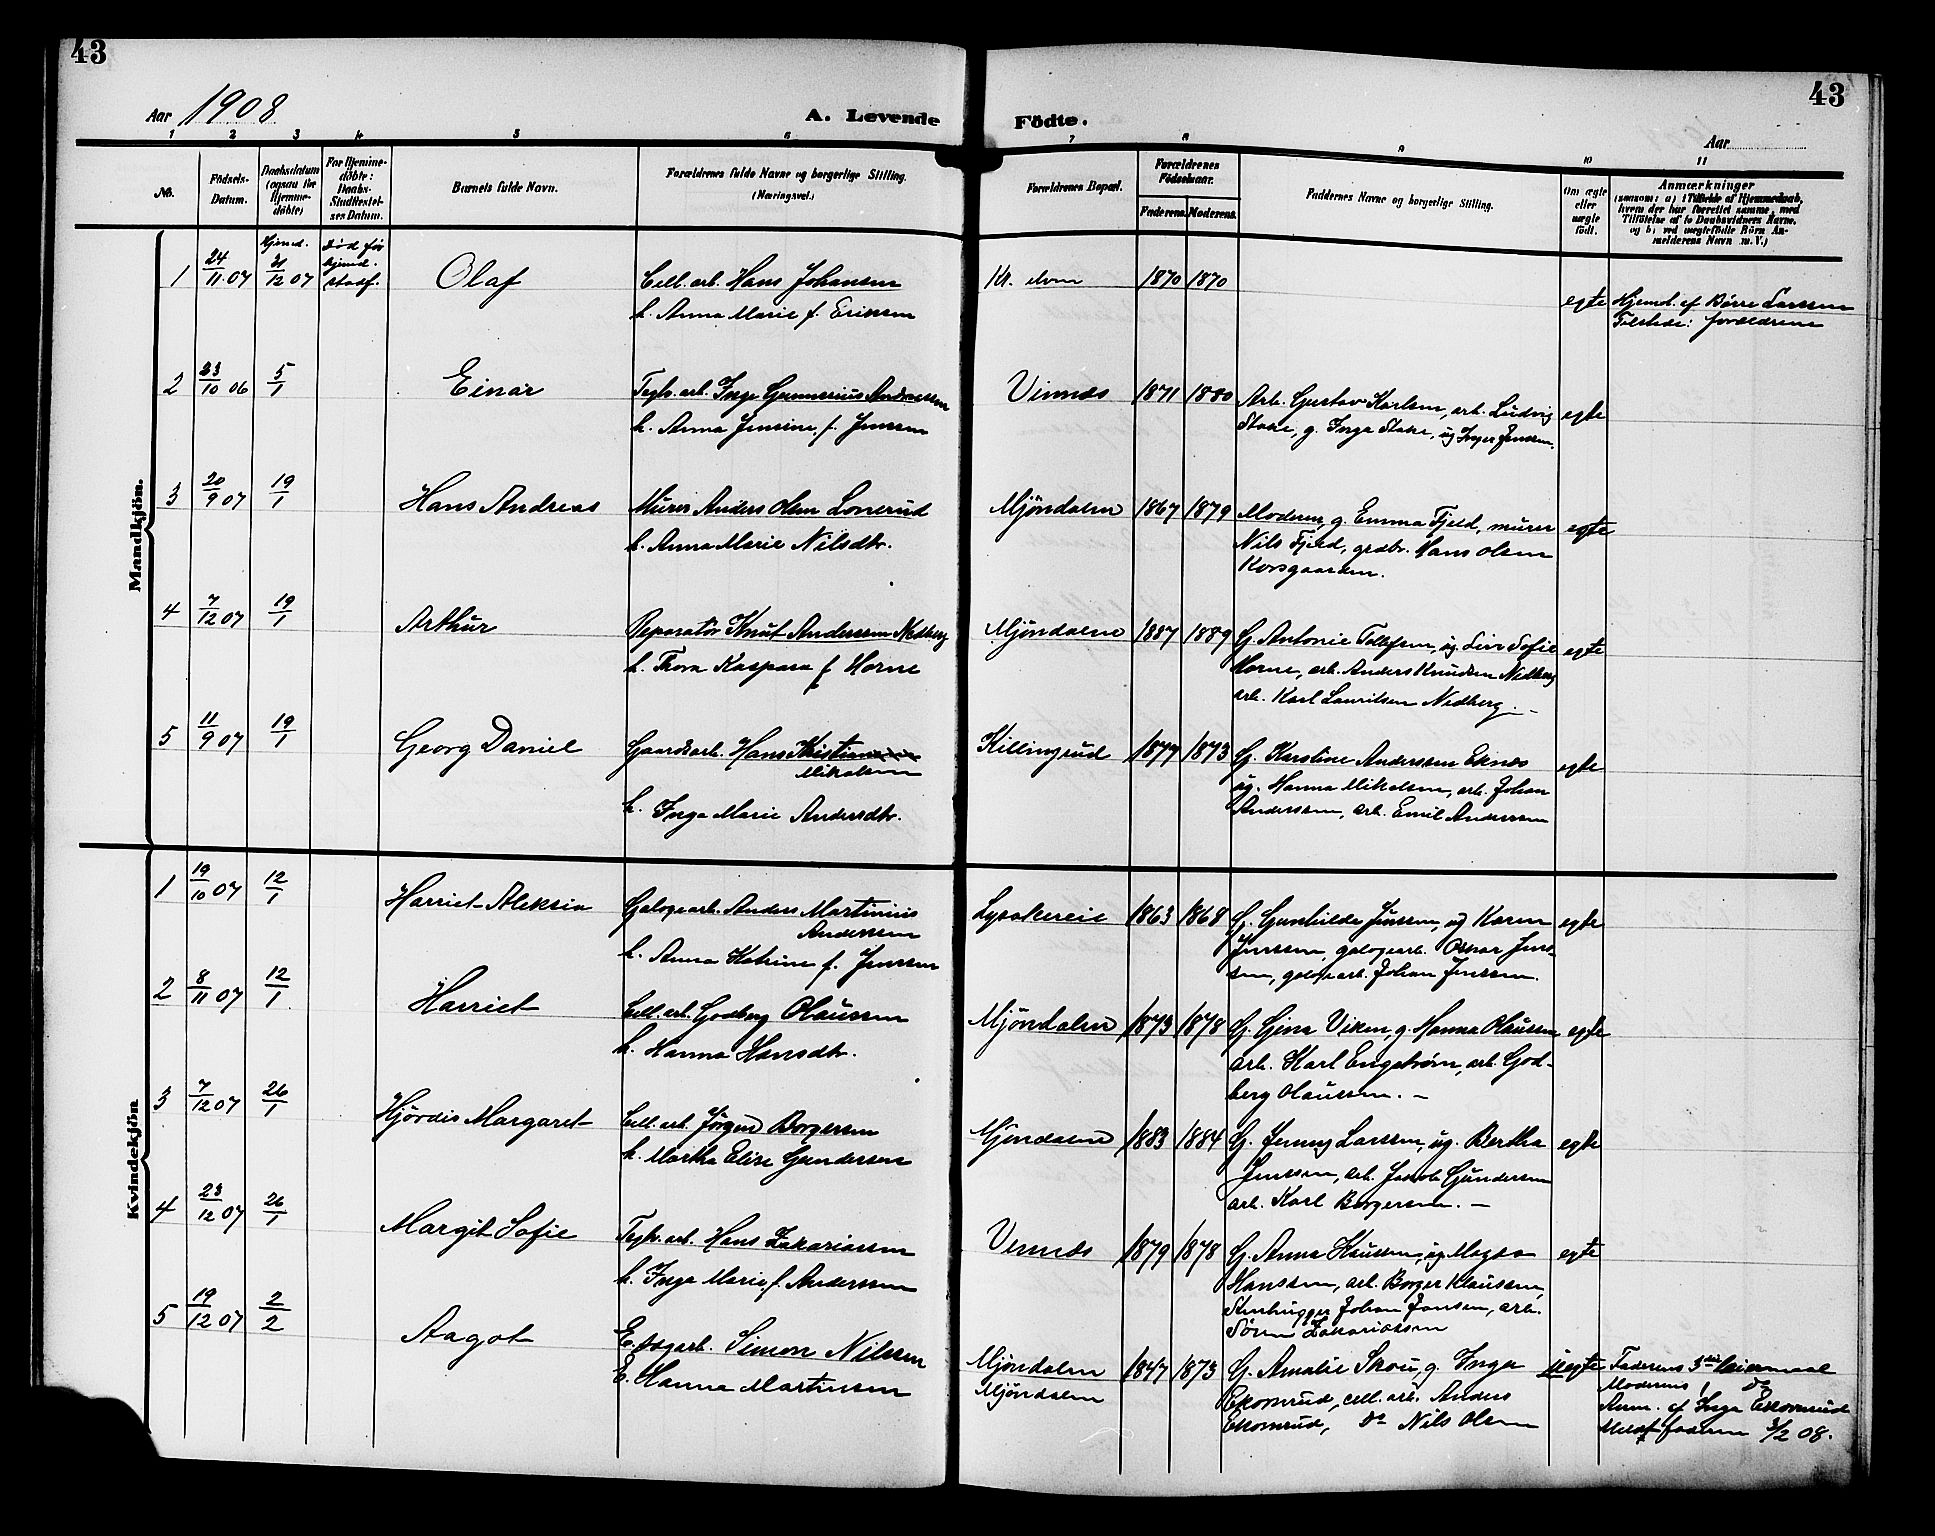 43
43
Aar 1908
A. Levende
Födte.
Aar
1 2 3 4 5 6 7 8 9 10 11
No.
Födsels-
Datum.
Daabsdatum
(ogsaa for
Hjemme-
døbte)
For Hjemme-
døbte:
Daabs-
Stadfestel-
ses Datum.
Barnets fulde Navn.
Forældrenes fulde Navne og borgerlige Stilling.
(Næringsvei.)
Forældrenes Bopæl.
Forældrenes
Födselsaar.
Faderens. Moderens.
Faddernes Navne og borgerlige Stilling.
Om ægte
eller
uægte
født.
Anmærkninger
(saasom: a) i Tilfælde af Hjemmedaab,
hvem der har forrettet samme, med
Tilføielse af to Daabsvidners Navne,
og b) ved uægtefödte Börn An-
melderens Navn m. V.)
Mandkjön.
1 24/11 07 Hjemd. 31/12 07 Død før hjemd. stadf. Olaf
Cell. arb. Hans Johansen
h. Anna Marie f. Eriksen
Kr. elven 1870 1870
egte
Hjemd. af Børre Larssen
Tilstede: forældrene
2 23/10 06 5/1 Einar
Tegls. arb. Inge Gunnerius Andreassen
h. Anna Jensine f. Jenssen
Vinnes 1871 1880
Arb. Gustav Karlsen, arb. Ludvig
Stake, g. Inga Stake, ug Inger Jenssen.
egte
3 20/9 07 19/1 Hans Andreas
Murer Anders Olsen Lonerud
h. Anna Marie Nilsdtr.
Mjøndalen 1867 1879
Moderen, g. Emma Fjeld, murer
Nils Fjeld, grdbr. Hans Olsen
Korsgaarden.
egte
4 7/12 07 19/1 Arthur
Reparatør Knut Anderssen Nedberg
h. Thora Kaspara f. Horne
Mjøndalen 1887 1889
G. Antonie Tollefsen, ug Siri Sofie
Horne, arb. Anders Knudsen Nedberg
arb. Karl Lauritsen Nedberg. –
egte
5 11/9 07 19/1 Georg Daniel
Gaardsarb. Hans Kristiansen
Mikalsen
h. Inga Marie Andersdtr.
Killingrud 1877 1873
G. Karoline Anderssen Eknes
ug. Hanna Mikalsen, arb. Johan
Anderssen, arb. Emil Anderssen
egte
Kvindekjön
1 19/10 07 12/1 Harriet Aleksia
Galogearb. Anders Martinius
Anderssen
h. Anna Katrine f. Jenssen
Lysakereie 1863 1868
G. Gunhilde Jenssen, ug Karen
Jenssen, galogearb. Oskar Jens-
sen, galogearb. Johan Jenssen.
egte
2 8/11 07 12/1 Harriet
Cell. arb. Godberg Olaussen
h. Hanna Hansdtr.
Mjøndalen 1873 1878
G. Gina Viken, g. Hanna Olaussen
arb. Karl Engstrøm, arb. God-
berg Olaussen. –
egte
3 7/12 07 26/1 Hjørdis Margaret
Cell. arb. Jørgen Borgersen
h. Martha Elise Gundersen
Mjøndalen 1883 1884
G. Jenny Larssen, ug. Bertha
Jenssen, arb. Jakob Gundersen
arb. Karl Borgersen. –
egte
4 23/12 07 26/1 Margit Sofie
Tegls. arb. Hans Zakariassen
h. Inga Marie f. Anderssen
Vinnes 1879 1878
G. Anna Klaussen, ug Magda
Hanssen, arb. Borger Klaussen,
Stenhugger Johan Jansen, arb.
Søren Zakariassen
egte
5 19/12 07 2/2 Aagot
E. Dagarb. Simon Nilssen
E. Hanna Martinsen
Mjøndalen
Mjøndalen
1847 1873
G. Amalie Skou, g. Inga
Ekornrud, cell. arb. Anders
Ekornrud, Do Nils Olsen
uegte
Faderens 3die leiermaal
Moderens 1 Do
Anm. af Inga Ekornrud
Meldt faderen 3/2 08.